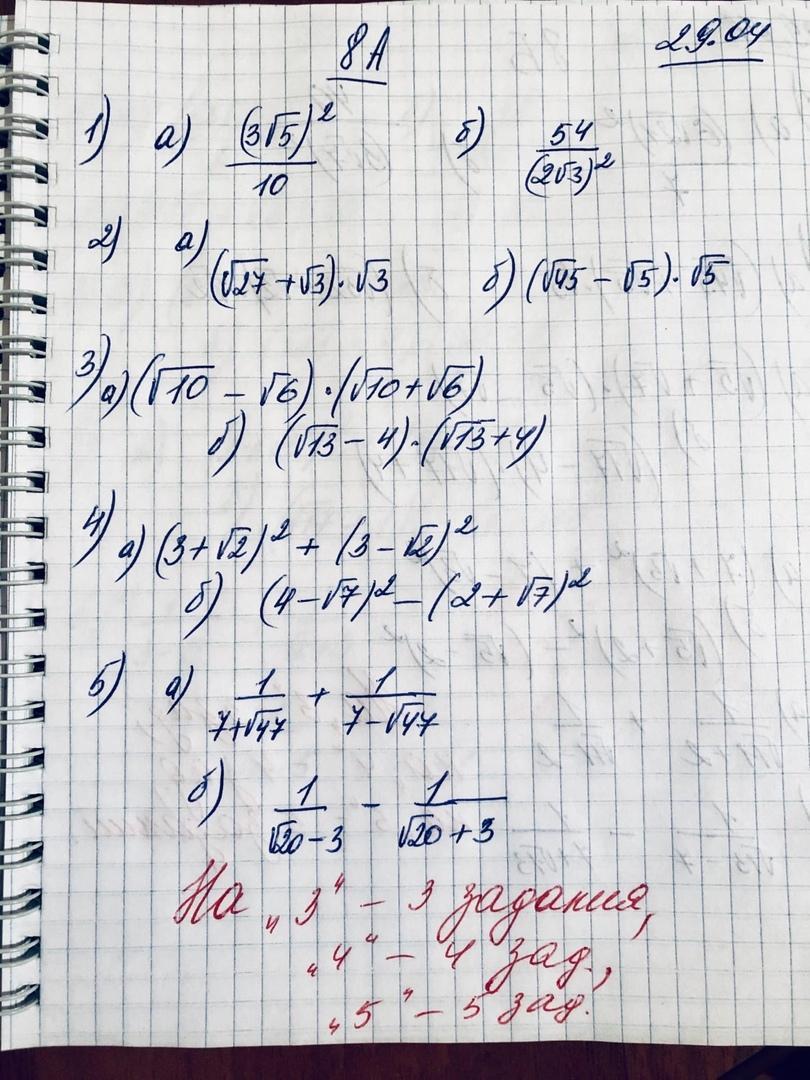 8А 29.04
1) а) (3√5)²/10 б) 54/(2√3)²
2) а) (√27 + √3)·√3 б) (√45 − √5)·√5
3) а) (√10 − √6)·(√10 + √6)
б) (√13 − 4)·(√13 + 4)
4) а) (3 + √2)² + (3 − √2)²
б) (4 − √7)² − (2 + √7)²
5) а) 1/(7+√47) + 1/(7−√47)
б) 1/(√20 − 3) − 1/(√20 + 3)
На „3" – 3 задания,
„4" – 4 зад.,
„5" – 5 зад.